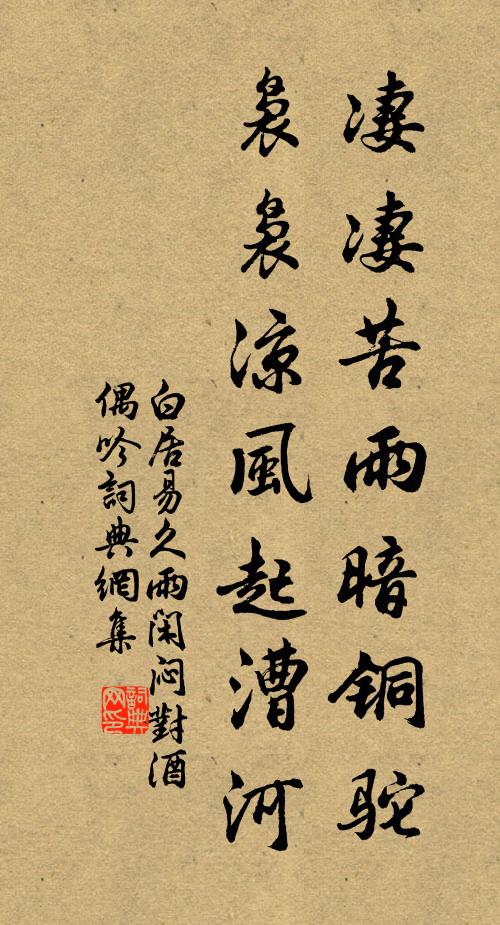 凄凄苦雨暗铜驼
袅袅凉風起漕河
白居易久雨闲闷對酒
偶吟詞典網集
詞典
网印